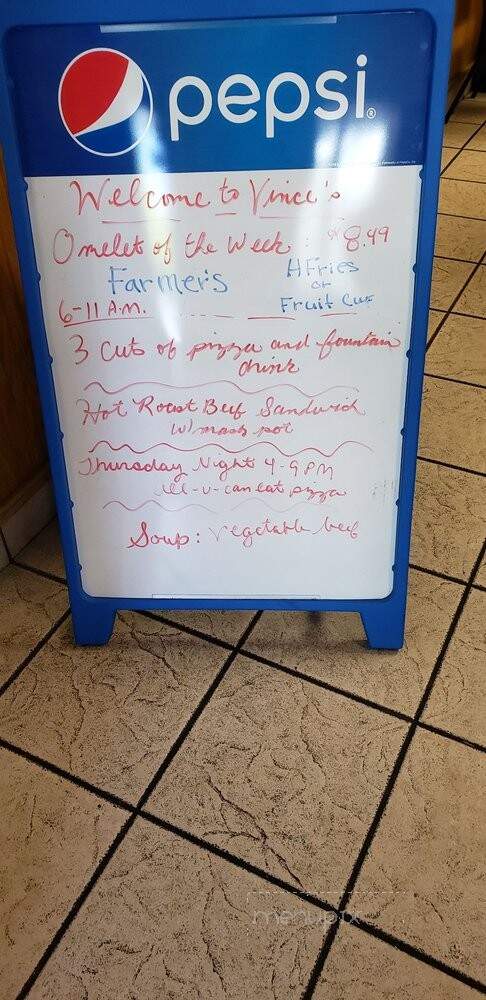 pepsi®
Welcome to Vince's
Omelet of the Week : $8.49
Farmer's
HFries
or
Fruit Cup
6-11 A.M.
3 cuts of pizza and fountain
drink
Hot Roast Beef Sandwich
w/ mash pot
Thursday Nights 4-9 PM
all-u-can eat pizza
Soup: vegetable beef
menupix